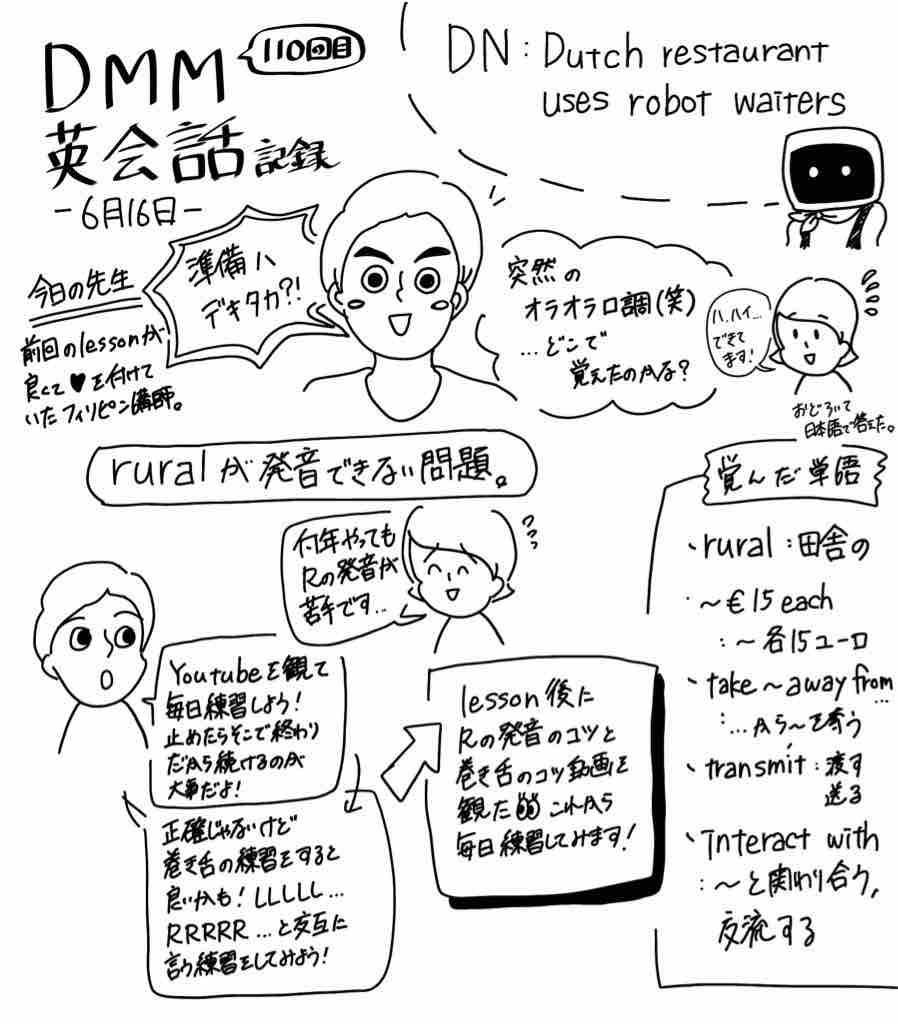 DMM
110回目
英会話 記録
-6月16日-
DN:Dutch restaurant
uses robot waiters
今日の先生
前回のlessonが
良くて♥を付けて
いたフィリピン講師。
準備ハ
デキタカ?!
突然の
オラオラ口調(笑)
...どこで
覚えたのかな?
ハ、ハイ...
できて
ます!
おどろいて
日本語で答えた。
ruralが発音できない問題。
何年やっても
Rの発音が
苦手です...
Youtubeを観て
毎日練習しよう!
止めたらそこで終わり
だから続けるのが
大事だよ!
正確じゃないけど
巻き舌の練習をすると
良いかも!LLLLL...
RRRRR...と交互に
言う練習をしてみよう!
lesson後に
Rの発音のコツと
巻き舌のコツ動画を
観た これから
毎日練習してみます!
覚んだ単語
・rural:田舎の
・~€15 each
:~各15ユーロ
・take~away from...
...から~を奪う
・transmit:渡す
送る
・interact with
:~と関わり合う,
交流する